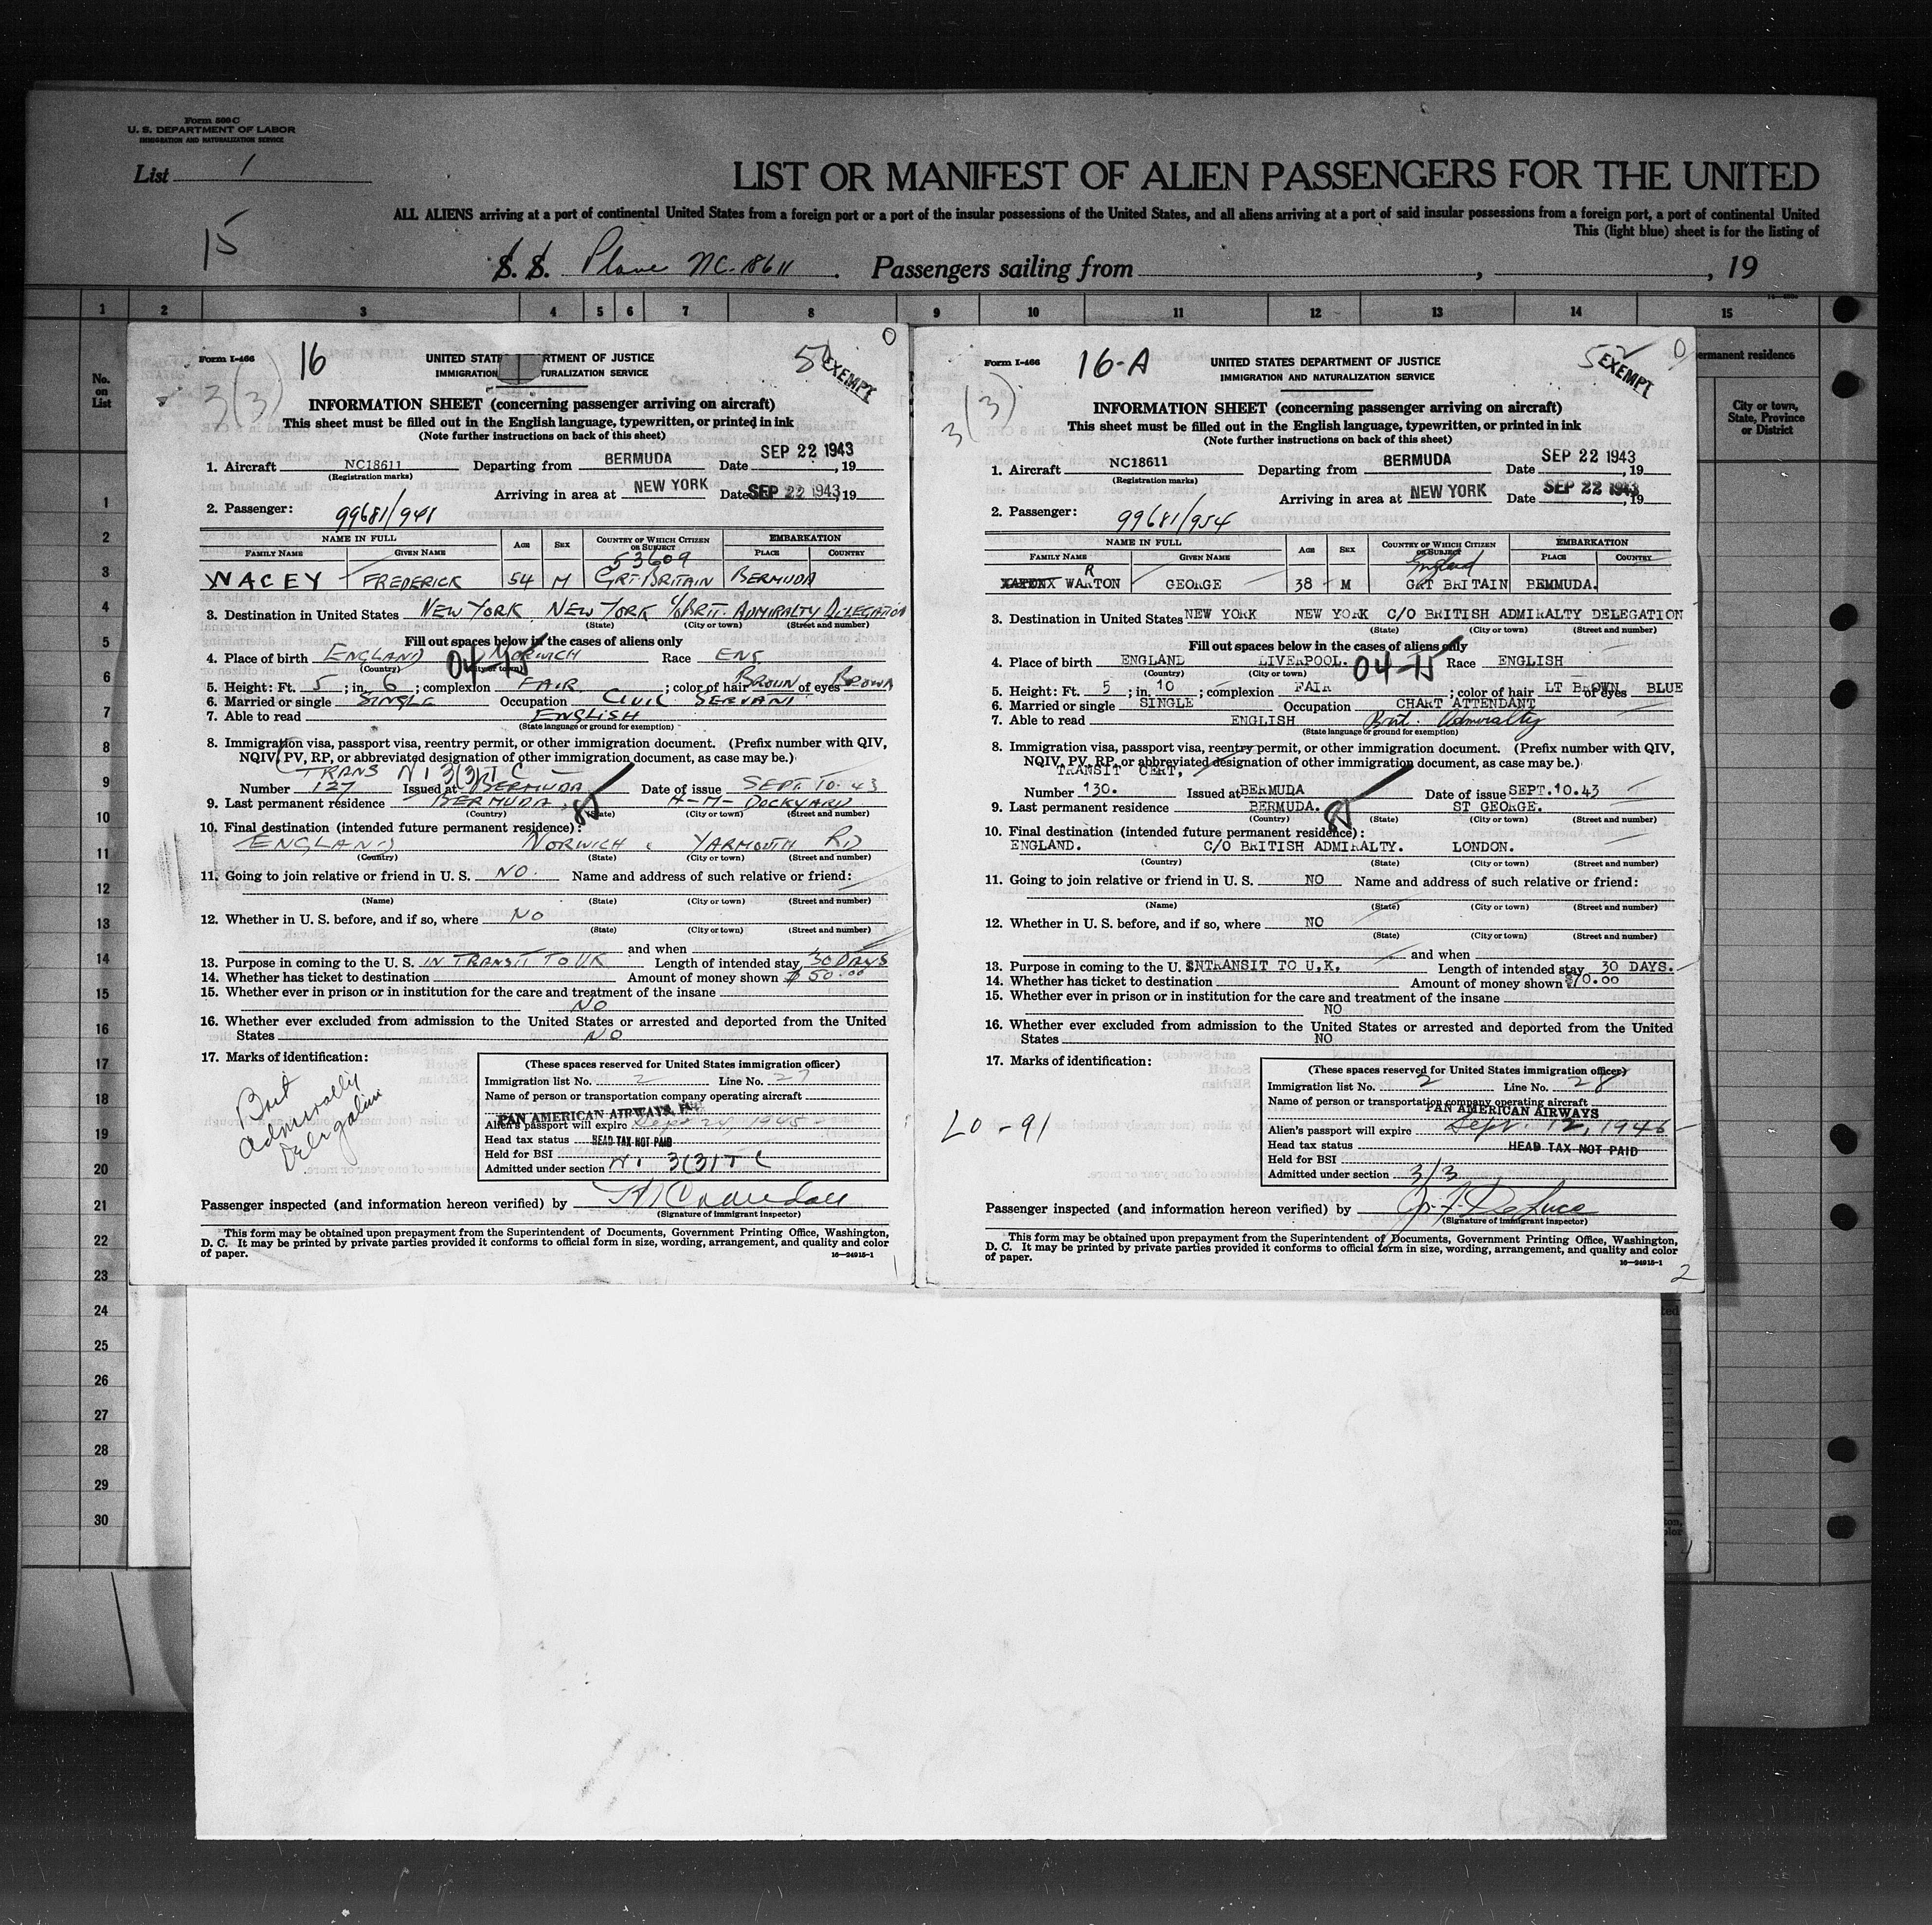 Form 500 C
U. S. DEPARTMENT OF LABOR
IMMIGRATION AND NATURALIZATION SERVICE
List 1
LIST OR MANIFEST OF ALIEN PASSENGERS FOR THE UNITED
ALL ALIENS arriving at a port of continental United States from a foreign port or a port of the insular possessions of the United States, and all aliens arriving at a port of said insular possessions from a foreign port, a port of continental United
This (light blue) sheet is for the listing of
15
S. S. Plane NC-18611 Passengers sailing from , , 19
1 2 3 4 5 6 7 8 9 10 11 12 13 14 15
No. on List
ermanent residence
City or town, State, Province or District
1
2
3
4
5
6
7
8
9
10
11
12
13
14
15
16
17
18
19
20
21
22
23
24
25
26
27
28
29
30
Form I-466
16
UNITED STAT RTMENT OF JUSTICE
IMMIGRATION TURALIZATION SERVICE
EXEMPT
3(3)
INFORMATION SHEET (concerning passenger arriving on aircraft)
This sheet must be filled out in the English language, typewritten, or printed in ink
(Note further instructions on back of this sheet)
1. Aircraft NC18611 Departing from BERMUDA Date SEP 22 1943, 19
(Registration marks)
Arriving in area at NEW YORK Date SEP 22 1943, 19
2. Passenger: 99681/941
NAME IN FULL AGE SEX COUNTRY OF WHICH CITIZEN OR SUBJECT EMBARKATION
FAMILY NAME GIVEN NAME PLACE COUNTRY
53609
WACEY FREDERICK 54 M GRT BRITAIN BERMUDA
3. Destination in United States NEW YORK NEW YORK c/o BRIT. ADMIRALTY DELEGATION
(State) (City or town) (Street and number)
Fill out spaces below in the cases of aliens only
4. Place of birth ENGLAND NORWICH Race ENG
(Country) (City or town)
04-15
5. Height: Ft. 5; in. 6; complexion FAIR; color of hair BROWN of eyes BROWN
6. Married or single SINGLE Occupation CIVIL SERVANT
7. Able to read ENGLISH
(State language or ground for exemption)
8. Immigration visa, passport visa, reentry permit, or other immigration document. (Prefix number with QIV,
NQIV, PV, RP, or abbreviated designation of other immigration document, as case may be.)
TRANS N I 3(3) T C
Number 127 Issued at BERMUDA Date of issue SEPT. 10. 43
9. Last permanent residence BERMUDA, H-M- DOCKYARD
(Country) (State) (City or town) (Street and number)
85
10. Final destination (intended future permanent residence):
ENGLAND NORWICH YARMOUTH RD
(Country) (State) (City or town) (Street and number)
11. Going to join relative or friend in U. S. NO. Name and address of such relative or friend:
(Name) (State) (City or town) (Street and number)
12. Whether in U. S. before, and if so, where NO
(State) (City or town) (Street and number)
and when
13. Purpose in coming to the U. S. IN TRANSIT TO UK Length of intended stay 30 DAYS
14. Whether has ticket to destination Amount of money shown $ 50.00
15. Whether ever in prison or in institution for the care and treatment of the insane
NO
16. Whether ever excluded from admission to the United States or arrested and deported from the United
States NO
17. Marks of identification:
Brit Admiralty Delegation
(These spaces reserved for United States immigration officer)
Immigration list No. 2 Line No. 27
Name of person or transportation company operating aircraft
PAN AMERICAN AIRWAYS, INC.
Alien's passport will expire Sept 24, 1945
Head tax status HEAD TAX NOT PAID
Held for BSI
Admitted under section N. I 3(3) T C
Passenger inspected (and information hereon verified) by
(Signature of immigrant inspector)
This form may be obtained upon prepayment from the Superintendent of Documents, Government Printing Office, Washington,
D. C. It may be printed by private parties provided it conforms to official form in size, wording, arrangement, and quality and color
of paper.
16-24915-1
Form I-466
16-A
UNITED STATES DEPARTMENT OF JUSTICE
IMMIGRATION AND NATURALIZATION SERVICE
52
EXEMPT
3(3)
INFORMATION SHEET (concerning passenger arriving on aircraft)
This sheet must be filled out in the English language, typewritten, or printed in ink
(Note further instructions on back of this sheet)
1. Aircraft NC18611 Departing from BERMUDA Date SEP 22 1943, 19
(Registration marks)
Arriving in area at NEW YORK Date SEP 22 1943, 19
2. Passenger: 99681/954
NAME IN FULL AGE SEX COUNTRY OF WHICH CITIZEN OR SUBJECT EMBARKATION
FAMILY NAME GIVEN NAME PLACE COUNTRY
R England
WARTON GEORGE 38 M GRT BRITAIN BEMMUDA.
3. Destination in United States NEW YORK NEW YORK C/O BRITISH ADMIRALTY DELEGATION
(State) (City or town) (Street and number)
Fill out spaces below in the cases of aliens only
4. Place of birth ENGLAND LIVERPOOL. 04-15 Race ENGLISH
(Country) (City or town)
5. Height: Ft. 5; in. 10; complexion FAIR; color of hair LT BROWN of eyes BLUE
6. Married or single SINGLE Occupation CHART ATTENDANT
7. Able to read ENGLISH Brit. Admiralty
(State language or ground for exemption)
8. Immigration visa, passport visa, reentry permit, or other immigration document. (Prefix number with QIV,
NQIV, PV, RP, or abbreviated designation of other immigration document, as case may be.)
TRANSIT CERT,
Number 130. Issued at BERMUDA Date of issue SEPT.10.43
9. Last permanent residence BERMUDA. ST GEORGE.
(Country) (State) (City or town) (Street and number)
85
10. Final destination (intended future permanent residence):
ENGLAND. C/O BRITISH ADMIRALTY. LONDON.
(Country) (State) (City or town) (Street and number)
11. Going to join relative or friend in U. S. NO Name and address of such relative or friend:
(Name) (State) (City or town) (Street and number)
12. Whether in U. S. before, and if so, where NO
(State) (City or town) (Street and number)
and when
13. Purpose in coming to the U. S. INTRANSIT TO U.K. Length of intended stay 30 DAYS.
14. Whether has ticket to destination Amount of money shown $70.00
15. Whether ever in prison or in institution for the care and treatment of the insane
NO
16. Whether ever excluded from admission to the United States or arrested and deported from the United
States NO
17. Marks of identification:
LO-91
(These spaces reserved for United States immigration officer)
Immigration list No. 2 Line No. 28
Name of person or transportation company operating aircraft
PAN AMERICAN AIRWAYS
Alien's passport will expire Sept. 12, 1945
Head tax status HEAD TAX NOT PAID
Held for BSI
Admitted under section 3/3
Passenger inspected (and information hereon verified) by
(Signature of immigrant inspector)
This form may be obtained upon prepayment from the Superintendent of Documents, Government Printing Office, Washington,
D. C. It may be printed by private parties provided it conforms to official form in size, wording, arrangement, and quality and color
of paper.
16-24915-1
2